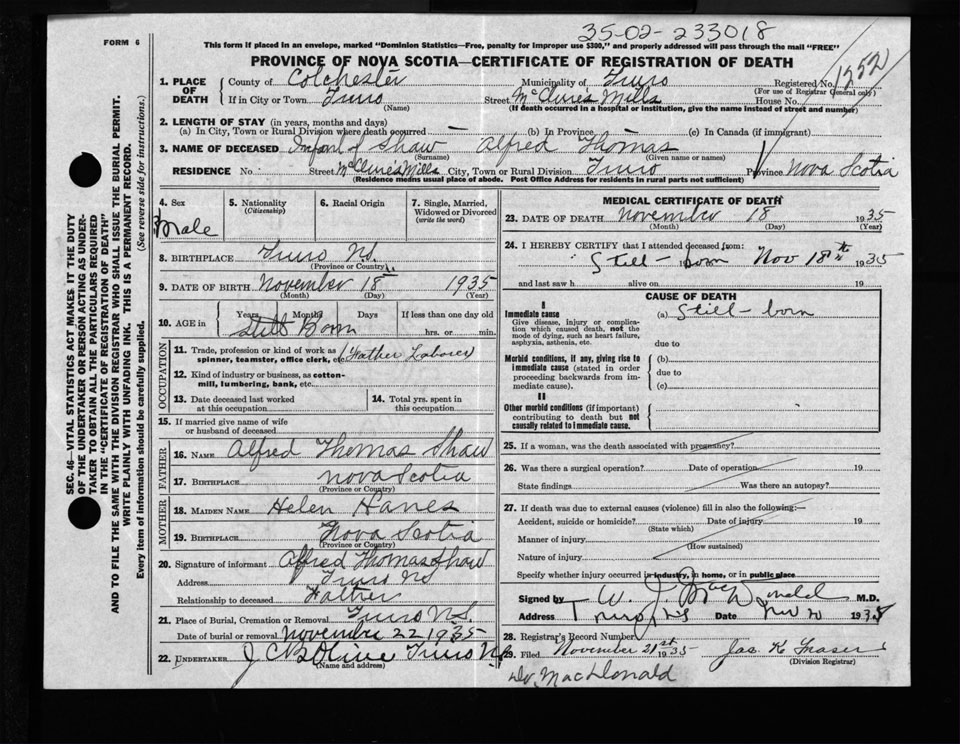 35-02-233018
FORM 6
This form if placed in an envelope, marked "Dominion Statistics—Free, penalty for improper use $300," and properly addressed will pass through the mail "FREE"
PROVINCE OF NOVA SCOTIA—CERTIFICATE OF REGISTRATION OF DEATH
1. PLACE OF DEATH County of Colchester Municipality of Truro Registered No. 1252
(For use of Registrar General only)
If in City or Town Truro Street McClure's Mills House No.
(Name) (If death occurred in a hospital or institution, give the name instead of street and number)
2. LENGTH OF STAY (in years, months and days)
(a) In City, Town or Rural Division where death occurred — (b) In Province — (c) In Canada (if immigrant)
3. NAME OF DECEASED Infant of Shaw Alfred Thomas
(Surname) (Given name or names)
RESIDENCE No. Street McClure's Mills City, Town or Rural Division Truro Province Nova Scotia
(Residence means usual place of abode. Post Office Address for residents in rural parts not sufficient)
SEC. 46—VITAL STATISTICS ACT MAKES IT THE DUTY
OF THE UNDERTAKER OR PERSON ACTING AS UNDER-
TAKER TO OBTAIN ALL THE PARTICULARS REQUIRED
IN THE "CERTIFICATE OF REGISTRATION OF DEATH"
AND TO FILE THE SAME WITH THE DIVISION REGISTRAR WHO SHALL ISSUE THE BURIAL PERMIT.
WRITE PLAINLY WITH UNFADING INK. THIS IS A PERMANENT RECORD.
Every item of information should be carefully supplied. (See reverse side for instructions.)
4. Sex 5. Nationality 6. Racial Origin 7. Single, Married,
(Citizenship) Widowed or Divorced
(write the word)
Male
8. BIRTHPLACE Truro N.S.
(Province or Country)
9. DATE OF BIRTH November 18 1935
(Month) (Day) (Year)
10. AGE in Years Months Days If less than one day old
Still Born hrs. or min.
OCCUPATION
11. Trade, profession or kind of work as (Father Laborer)
spinner, teamster, office clerk, etc.
12. Kind of industry or business, as cotton-
mill, lumbering, bank, etc.
13. Date deceased last worked 14. Total yrs. spent in
at this occupation this occupation
15. If married give name of wife
or husband of deceased
FATHER
16. NAME Alfred Thomas Shaw
17. BIRTHPLACE Nova Scotia
(Province or Country)
MOTHER
18. MAIDEN NAME Helen Hanes
19. BIRTHPLACE Nova Scotia
(Province or Country)
20. Signature of informant Alfred Thomas Shaw
Address Truro N.S
Relationship to deceased Father
21. Place of Burial, Cremation or Removal Truro N.S.
Date of burial or removal November 22 1935
22. UNDERTAKER J C B Olive Truro N.S
(Name and address)
MEDICAL CERTIFICATE OF DEATH
23. DATE OF DEATH November 18 1935
(Month) (Day) (Year)
24. I HEREBY CERTIFY that I attended deceased from:
Still-born Nov 18th 1935
and last saw h alive on 19
CAUSE OF DEATH
I
Immediate cause (a) Still-born
Give disease, injury or complica-
tion which caused death, not the
mode of dying, such as heart failure,
asphyxia, asthenia, etc. due to
Morbid conditions, if any, giving rise to (b)
immediate cause (stated in order due to
proceeding backwards from im-
mediate cause). (c)
II
Other morbid conditions (if important)
contributing to death but not
causally related to immediate cause.
25. If a woman, was the death associated with pregnancy?
26. Was there a surgical operation? Date of operation 19
State findings Was there an autopsy?
27. If death was due to external causes (violence) fill in also the following:—
Accident, suicide or homicide? Date of injury 19
(State which)
Manner of injury
(How sustained)
Nature of injury
Specify whether injury occurred in industry, in home, or in public place
Signed by W. J. MacDonald M.D.
Address Truro, N.S Date Nov 20 1935
28. Registrar's Record Number
29. Filed November 21st 1935 Jas. K Fraser
(Division Registrar)
Dr. MacDonald